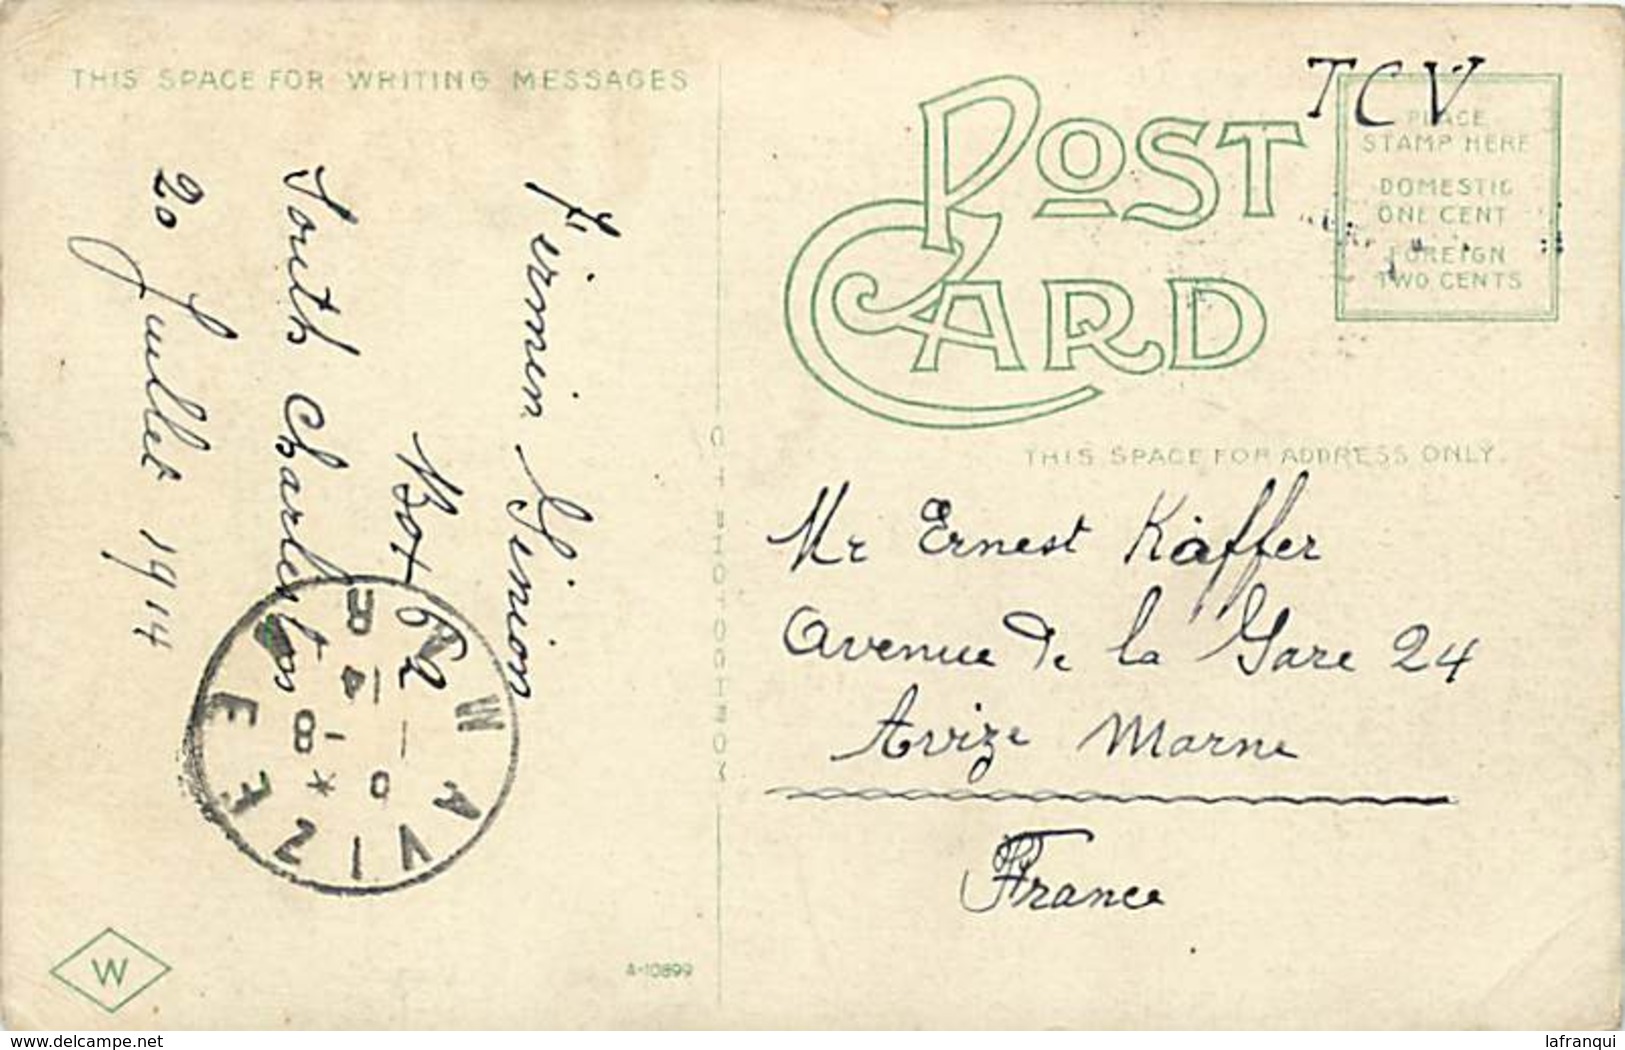 THIS SPACE FOR WRITING MESSAGES
Firmin Ginion
Box 62
South Charleston
20 Juillet 1914
AVIZE
MARNE
W
A-10899
POST CARD
TCV
PLACE
STAMP HERE
DOMESTIC
ONE CENT
FOREIGN
TWO CENTS
THIS SPACE FOR ADDRESS ONLY.
Mr Ernest Kàffer
Avenue de la Gare 24
Avize Marne
France
delcampe.net
lafranqui